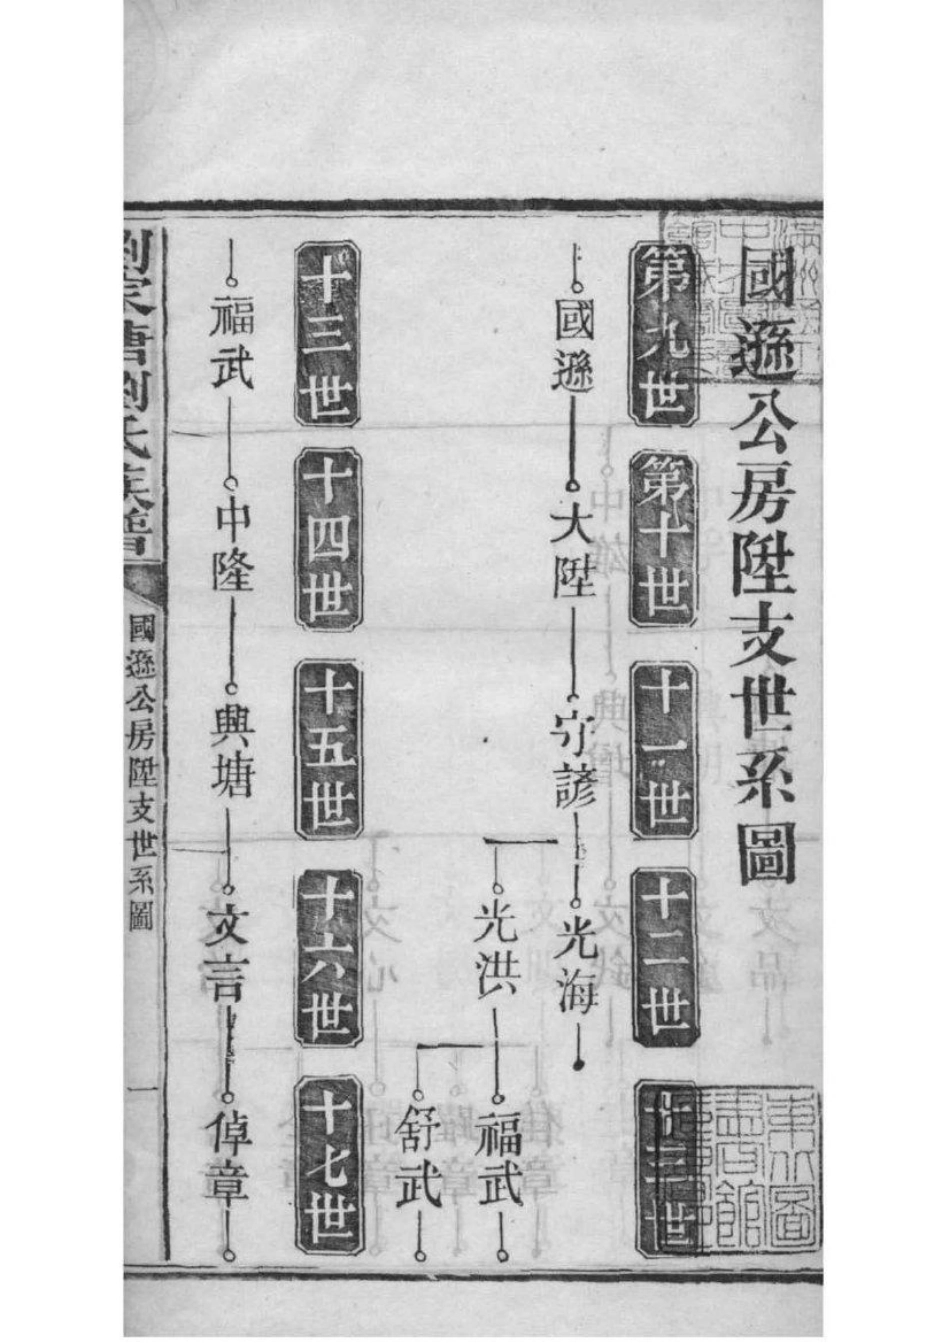 國遜公房陞支世系圖
第九世
第十世
十一世
十二世
十三世
國遜
大陞
守諺
光海
光洪
福武
舒武
十三世
十四世
十五世
十六世
十七世
福武
中隆
興塘
文言
倬章
劉家唐劉氏族譜
國遜公房陞支世系圖
一